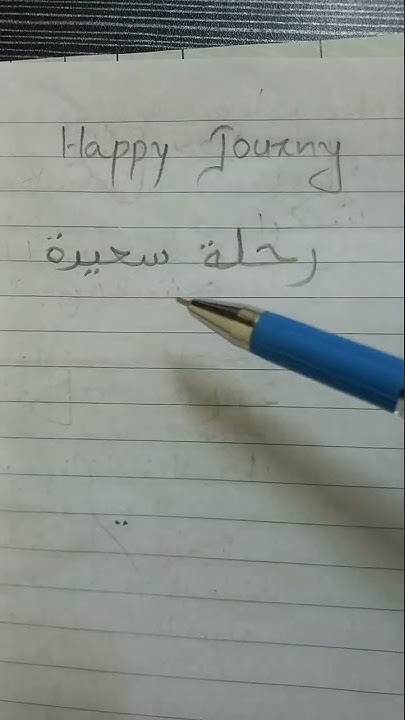 Happy Journy
رحلة سعيدة